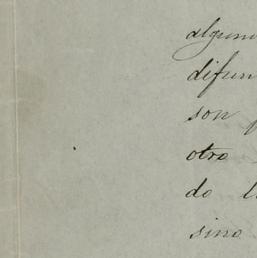 algun
difun
son
otro
do l
sino